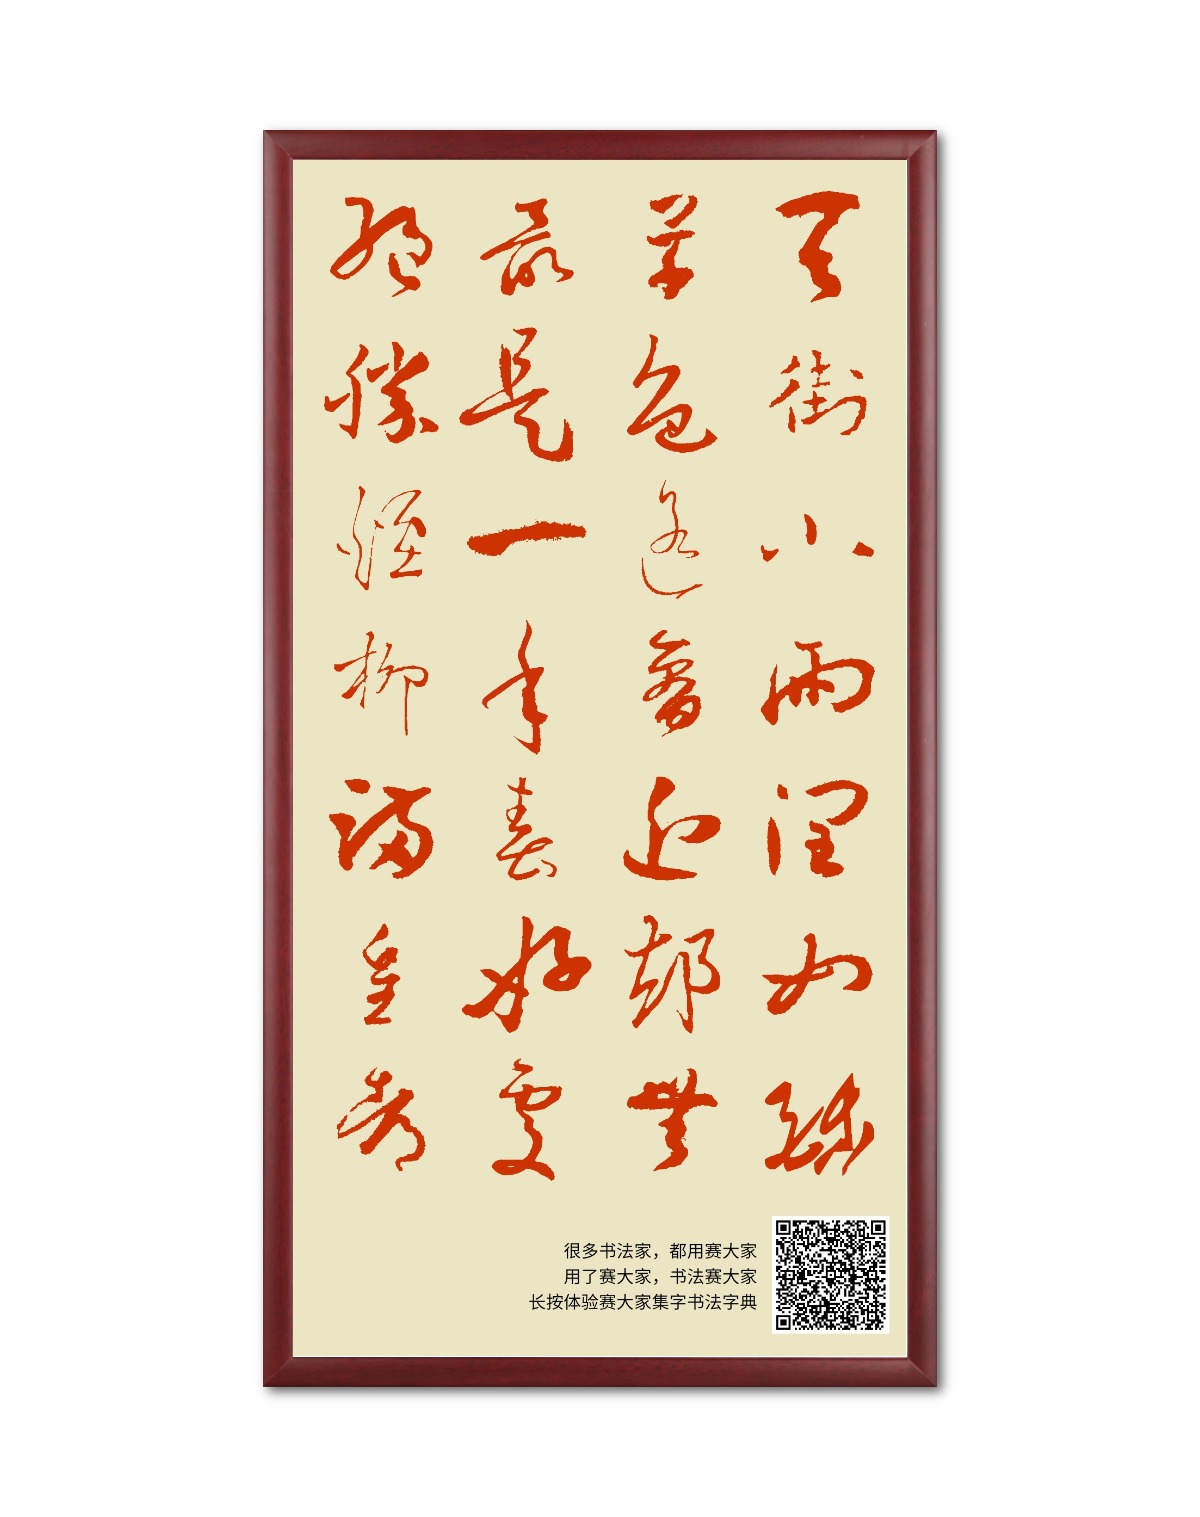 天街小雨潤如酥
草色遙看近卻無
最是一年春好處
絕勝煙柳滿皇都
很多书法家，都用赛大家
用了赛大家，书法赛大家
长按体验赛大家集字书法字典